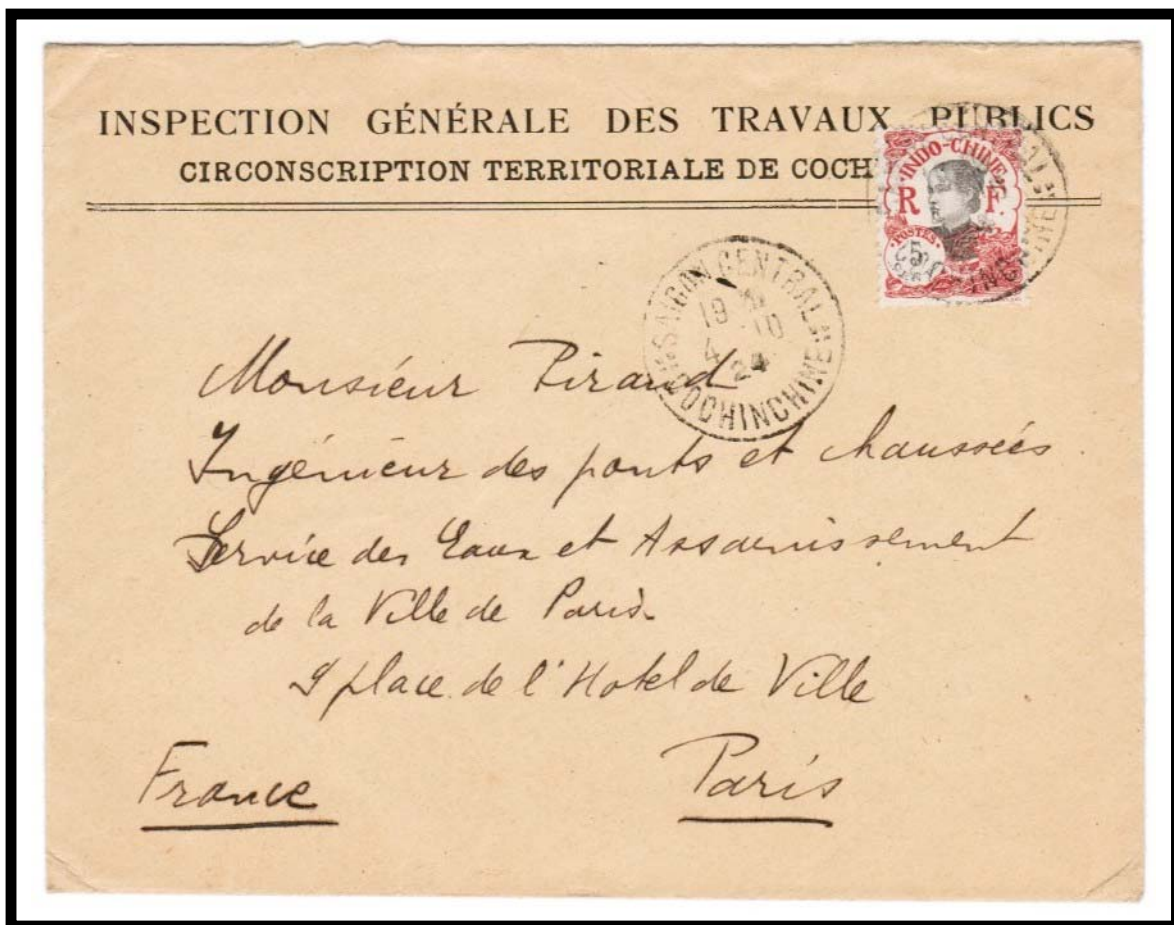 INSPECTION GÉNÉRALE DES TRAVAUX PUBLICS
CIRCONSCRIPTION TERRITORIALE DE COCH
INDO-CHINE
R F.
POSTES
5
SAIGON CENTRAL
19 10
4 24
COCHINCHINE
Monsieur Piraud
Ingénieur des ponts et chaussées
Service des Eaux et Assainissement
de la Ville de Paris
9 place de l'Hotel de Ville
France Paris